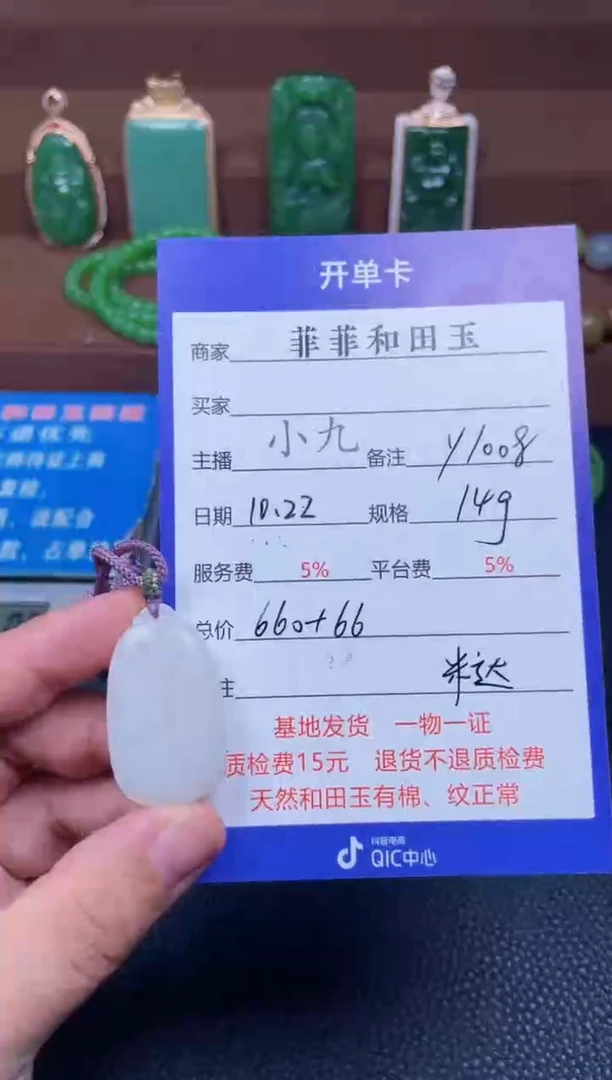 开单卡
商家 菲菲和田玉
买家
主播 小九 备注 y1008
日期 10.22 规格 14g
服务费 5% 平台费 5%
总价 660+66
主 米达
基地发货 一物一证
质检费15元 退货不退质检费
天然和田玉有棉、纹正常
抖音电商
QIC中心